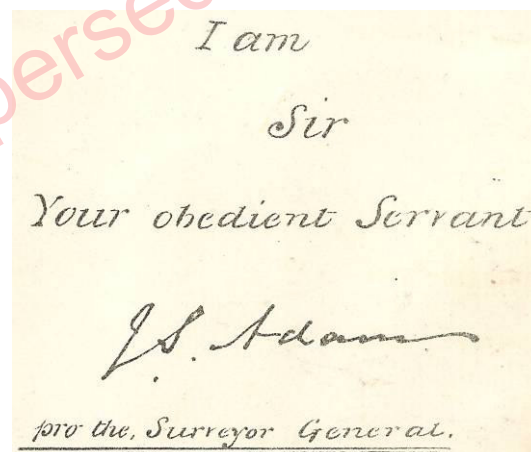 I am
Sir
Your obedient Servant
J.S. Adam
pro the, Surveyor General.